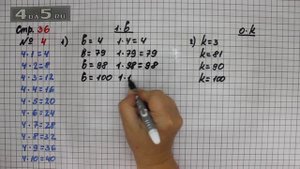 4DA5.RU
Стр. 36
№ 4
4·1=4
4·2=8
4·3=12
4·4=16
4·5=20
4·6=24
4·7=28
4·8=32
4·9=36
4·10=40
1·b
1) b=4 1·4=4
b=79 1·79=79
b=98 1·98=98
b=100 1·1
0·k
2) k=3
k=81
k=90
k=100